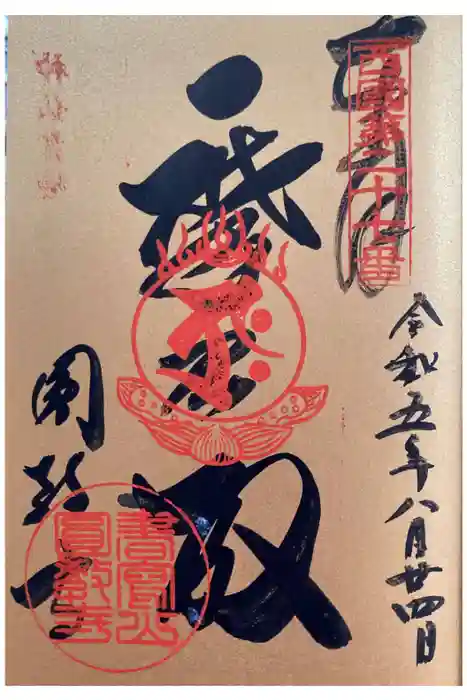 奉拝
西國第二十七番
令和五年八月廿四日
摩尼殿
圓教寺
書寫山
圓教寺